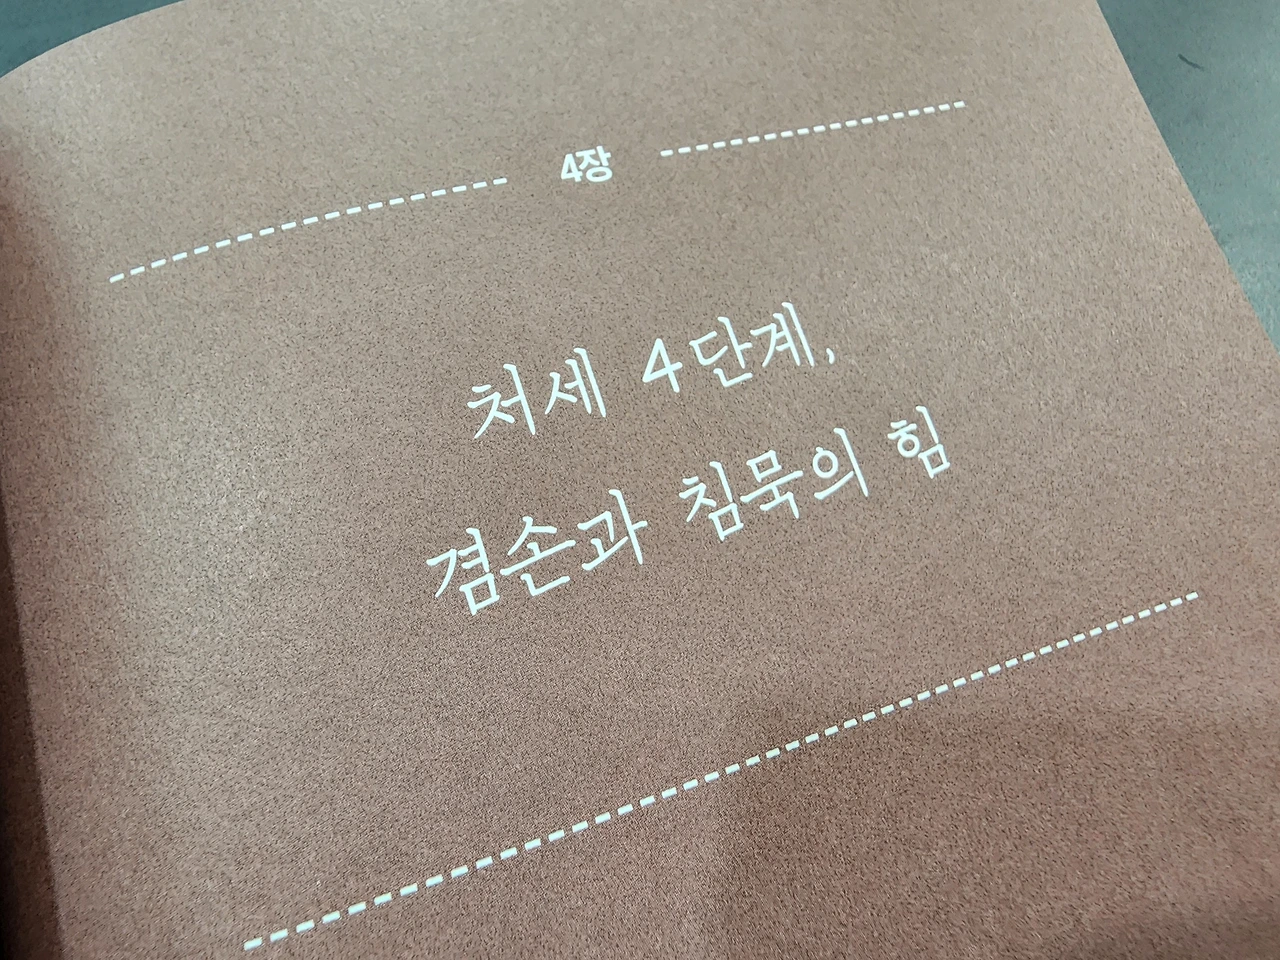 4장
처세 4단계,
겸손과 침묵의 힘